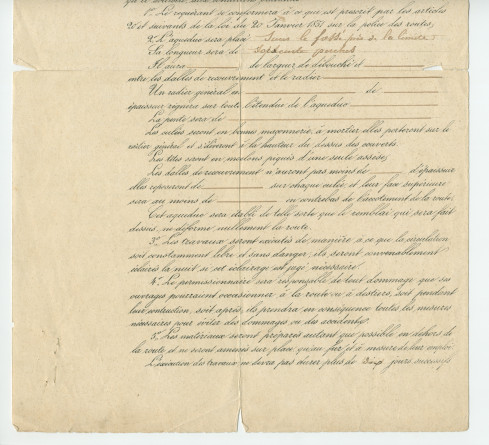 1.° Le requérant se conformera à ce que est prescrit par les articles
20 et suivants de la loi du 20 Janvier 1851 sur la police des routes,
2.° L'aqueduc sera placé Sous le fossé près de la
Sa longueur sera de
Il aura de largeur de débouché et
entre les dalles de recouvrement et le radier
Un radier général en de
épaisseur régnera sur toute l'étendue de l'aqueduc
La pente sera de
Les culées seront en bonne maçonnerie, à mortier elles porteront sur le
radier général et s'élèveront à la hauteur du dessous des couverts.
Les têtes seront en moëlons piqués d'une seule assise,
Les dalles de recouvrement n'auront pas moins de d'épaisseur
elles reposeront de sur chaque culée, et leur face supérieure
sera au moins de en contrebas de l'accotement de la route.
Cet aqueduc sera établi de telle sorte que le remblai qui sera fait
dessus, ne déforme nullement la route.
3.° Les travaux seront exécutés de manière à ce que la circulation
soit constamment libre et sans danger, ils seront convenablement
éclairés la nuit si cet éclairage est jugé nécessaire.
4.° Le permissionnaire sera responsable de tout dommage que ses
ouvrages pourraient occasionner à la route ou à des tiers, soit pendant
leur construction, soit après, ils prendra en conséquence toutes les mesures
nécessaires pour éviter des dommages ou des accidents.
5. Les matériaux seront préparés autant que possible en dehors de
la route et ne seront amenés sur place qu'au fur et à mesure de leur emploi
L'exécution des travaux ne devra pas durer plus de Cinq jours successifs